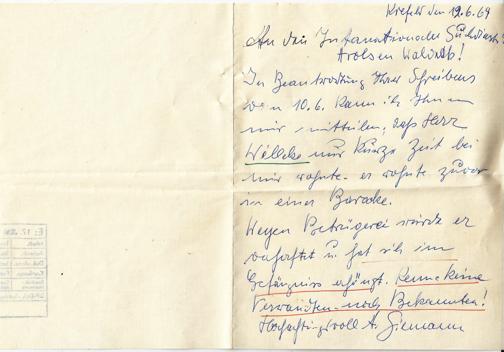 Krefeld den 12.6.64
An den Internationalen Suchdienst!
Arolsen Waldeck!
In Beantwortung Ihres Schreibens
vom 10.6. kann ich Ihnen
nur mitteilen, daß Herr
Willeke nur kurze Zeit bei
mir wohnte. er wohnte zuvor
in einer Baracke.
Wegen Betrügerei wurde er
verhaftet u. hat sich im
Gefängniss erhängt. Kenne keine
Verwandten noch Bekannten!
Hochachtungsvoll A. Giemann